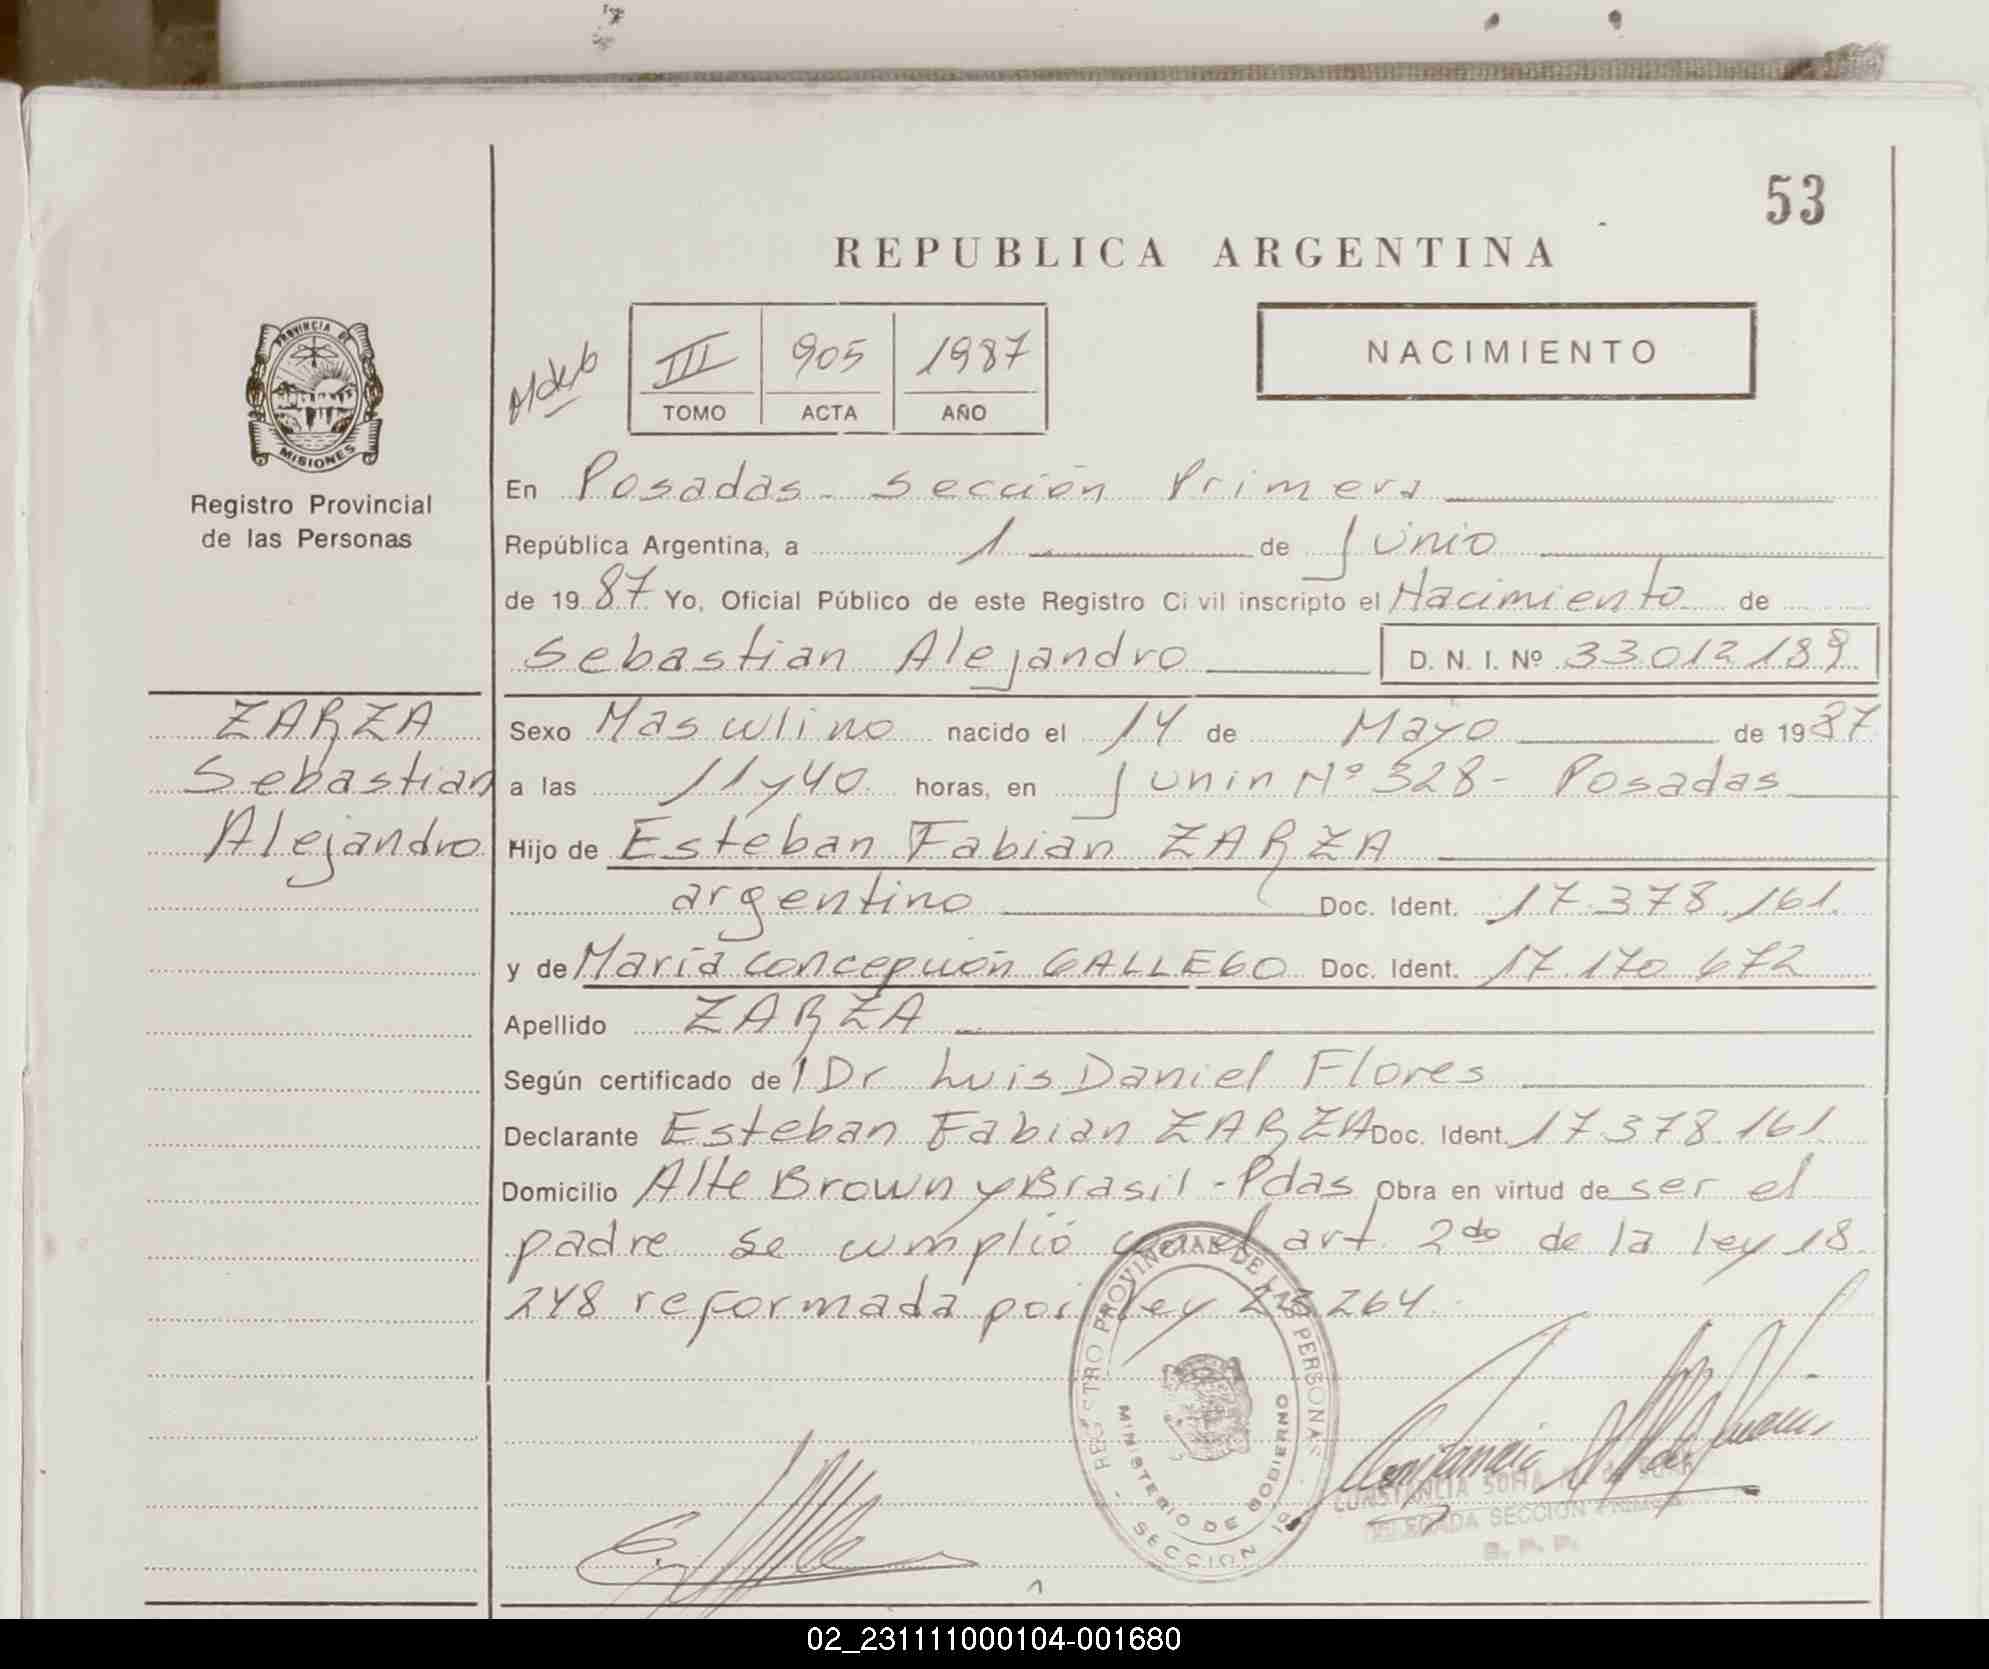 53
REPUBLICA ARGENTINA
III 905 1987
TOMO ACTA AÑO
NACIMIENTO
PROVINCIA DE
MISIONES
Registro Provincial
de las Personas
En Posadas - Sección Primera
República Argentina, a 1 de Junio
de 1987 Yo, Oficial Público de este Registro Civil inscripto el Nacimiento de
Sebastian Alejandro D. N. I. Nº 33012189
ZARZA
Sebastian
Alejandro
Sexo Masculino nacido el 14 de Mayo de 1987
a las 11 y 40 horas, en Junin Nº 328 - Posadas
Hijo de Esteban Fabian ZARZA
argentino Doc. Ident. 17.378.161.
y de Maria Concepción GALLEGO Doc. Ident. 17.170.672
Apellido ZARZA
Según certificado del Dr Luis Daniel Flores
Declarante Esteban Fabian ZARZA Doc. Ident. 17.378.161
Domicilio Alte Brown y Brasil - Pdas Obra en virtud de ser el
padre se cumplió con el art. 2do de la ley 18.
248 reformada por ley 23.264.
REGISTRO PROVINCIAL DE LAS PERSONAS
MINISTERIO DE GOBIERNO
SECCION 1a
CONSTANCIA SOFIA
SECCION PRIMERA
R. P. P.
02_231111000104-001680